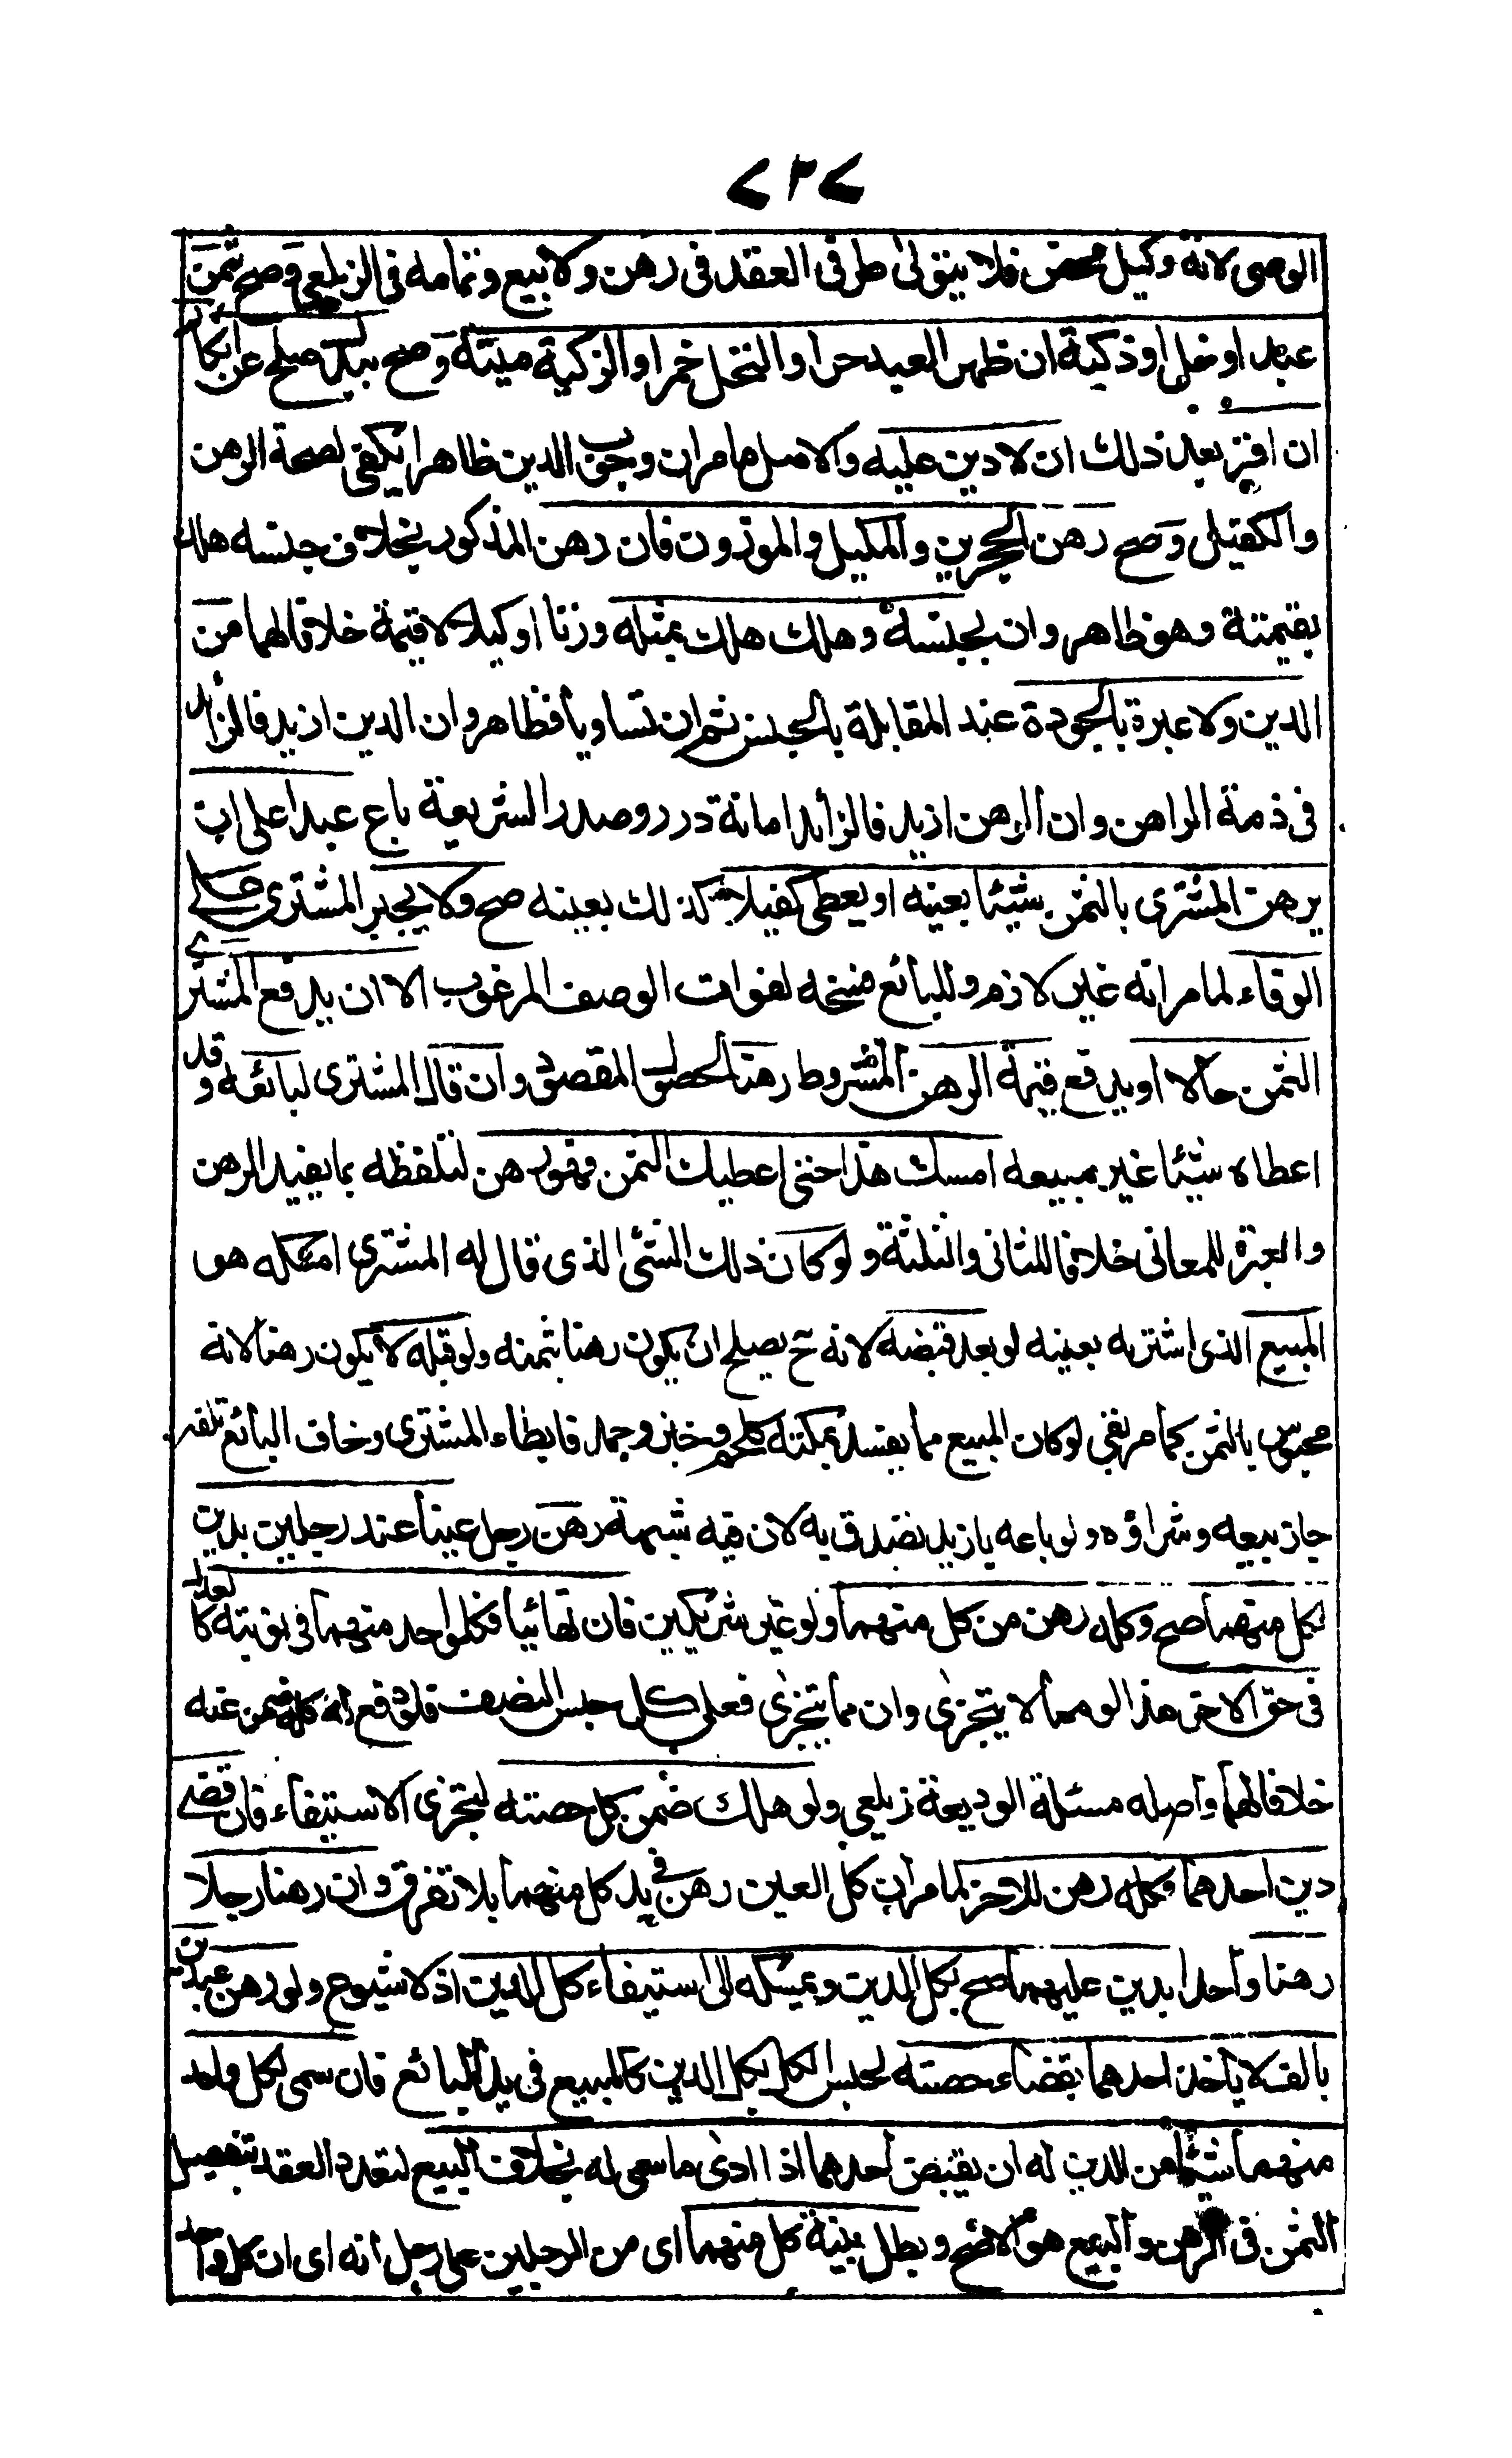 <٣<
الوصى لانه وكيل محض فلا يتولى طرفى العقد فى رهن ولا بيع وتمامه فى الزيلعى وصح بثمن
عبد او خل او ذكية ان ظهر العبد حرا والخل خمرا والذكية ميتة وصح ببدل صلح عن انكار
ان اقر بعد ذلك ان لا دين عليه والاصل ما مر ان وجوب الدين ظاهرا يكفى لصحة الرهن
والكفيل وصح رهن الحجرين والمكيل والموزون فان رهن المذكور بخلاف جنسه هلك
بقيمته وهو ظاهر وان بجنسه وهلك هلك بمثله وزنا او كيلا لا قيمة خلافا لهما من
الدين ولا عبرة بالجودة عند المقابلة بالجنس ثم ان تساويا فظاهر وان الدين ازيد فالزائد
فى ذمة الراهن وان الرهن ازيد فالزائد امانة درر وصدر الشريعة باع عبدا على ان
يرهن المشترى بالثمن شيئا بعينه او يعطى كفيلا كذلك بعينه صح ولا يجبر المشترى على
الوفاء لما مر انه غير لازم وللبائع فسخه لفوات الوصف المرغوب الا ان يدفع المشترى
الثمن حالا او يدفع قيمة الرهن المشروط رهنا لحصول المقصود وان قال المشترى لبائعه وقد
اعطاه شيئا غير مبيعه امسك هذا حتى اعطيك الثمن فهو رهن لتلفظه بما يفيد الرهن
والعبرة للمعانى خلافا للثانى والثلثة ولو كان ذلك الشئ الذى قال له المشترى امسكه هو
المبيع الذى اشتراه بعينه لو بعد قبضه لانه ح يصلح ان يكون رهنا بثمنه ولو قبله لا يكون رهنا لانه
محبوس بالثمن كما مر بقى لو كان المبيع مما يفسد بمكثه كلحم وخبز وجمد فابطاء المشترى وخاف البائع تلفه
جاز بيعه وشراؤه ولو باعه بازيد تصدق به لان فيه شبهة رهن رجل عينا عند رجلين بدين
لكل منهما صح وكله رهن من كل منهما ولو غير شريكين فان تهائيا فكل واحد منهما فى نوبته كالعدل
فى حق الاخر هذا لو مما لا يتجزى وان مما يتجزى فعلى كل حبس النصف فلو دفع له كله ضمن عنده
خلافا لهما واصله مسئلة الوديعة زيلعى ولو هلك ضمن كل حصته لتجزى الاستيفاء فان قضى
دين احدهما فكله رهن للاخر لما مر ان كل العين رهن فى يد كل منهما بلا تفرق وان رهنا رجلا
رهنا واحدا بدين عليهما صح بكل الدين ويمسكه الى استيفاء كل الدين اذ لا شيوع ولو رهن عبدين
بالف لا ياخذ احدهما بقضاء حصته لحبس الكل بكل الدين كالمبيع فى يد البائع فان سمى لكل واحد
منهما شيئا من الدين له ان يقبض احدهما اذا ادى ما سمى له بخلاف البيع لتعدد العقد بتفصيل
الثمن فى الرهن والبيع هو الاصح وبطل بينة كل منهما اى من الرجلين على رجل انه اى ان كل واحد